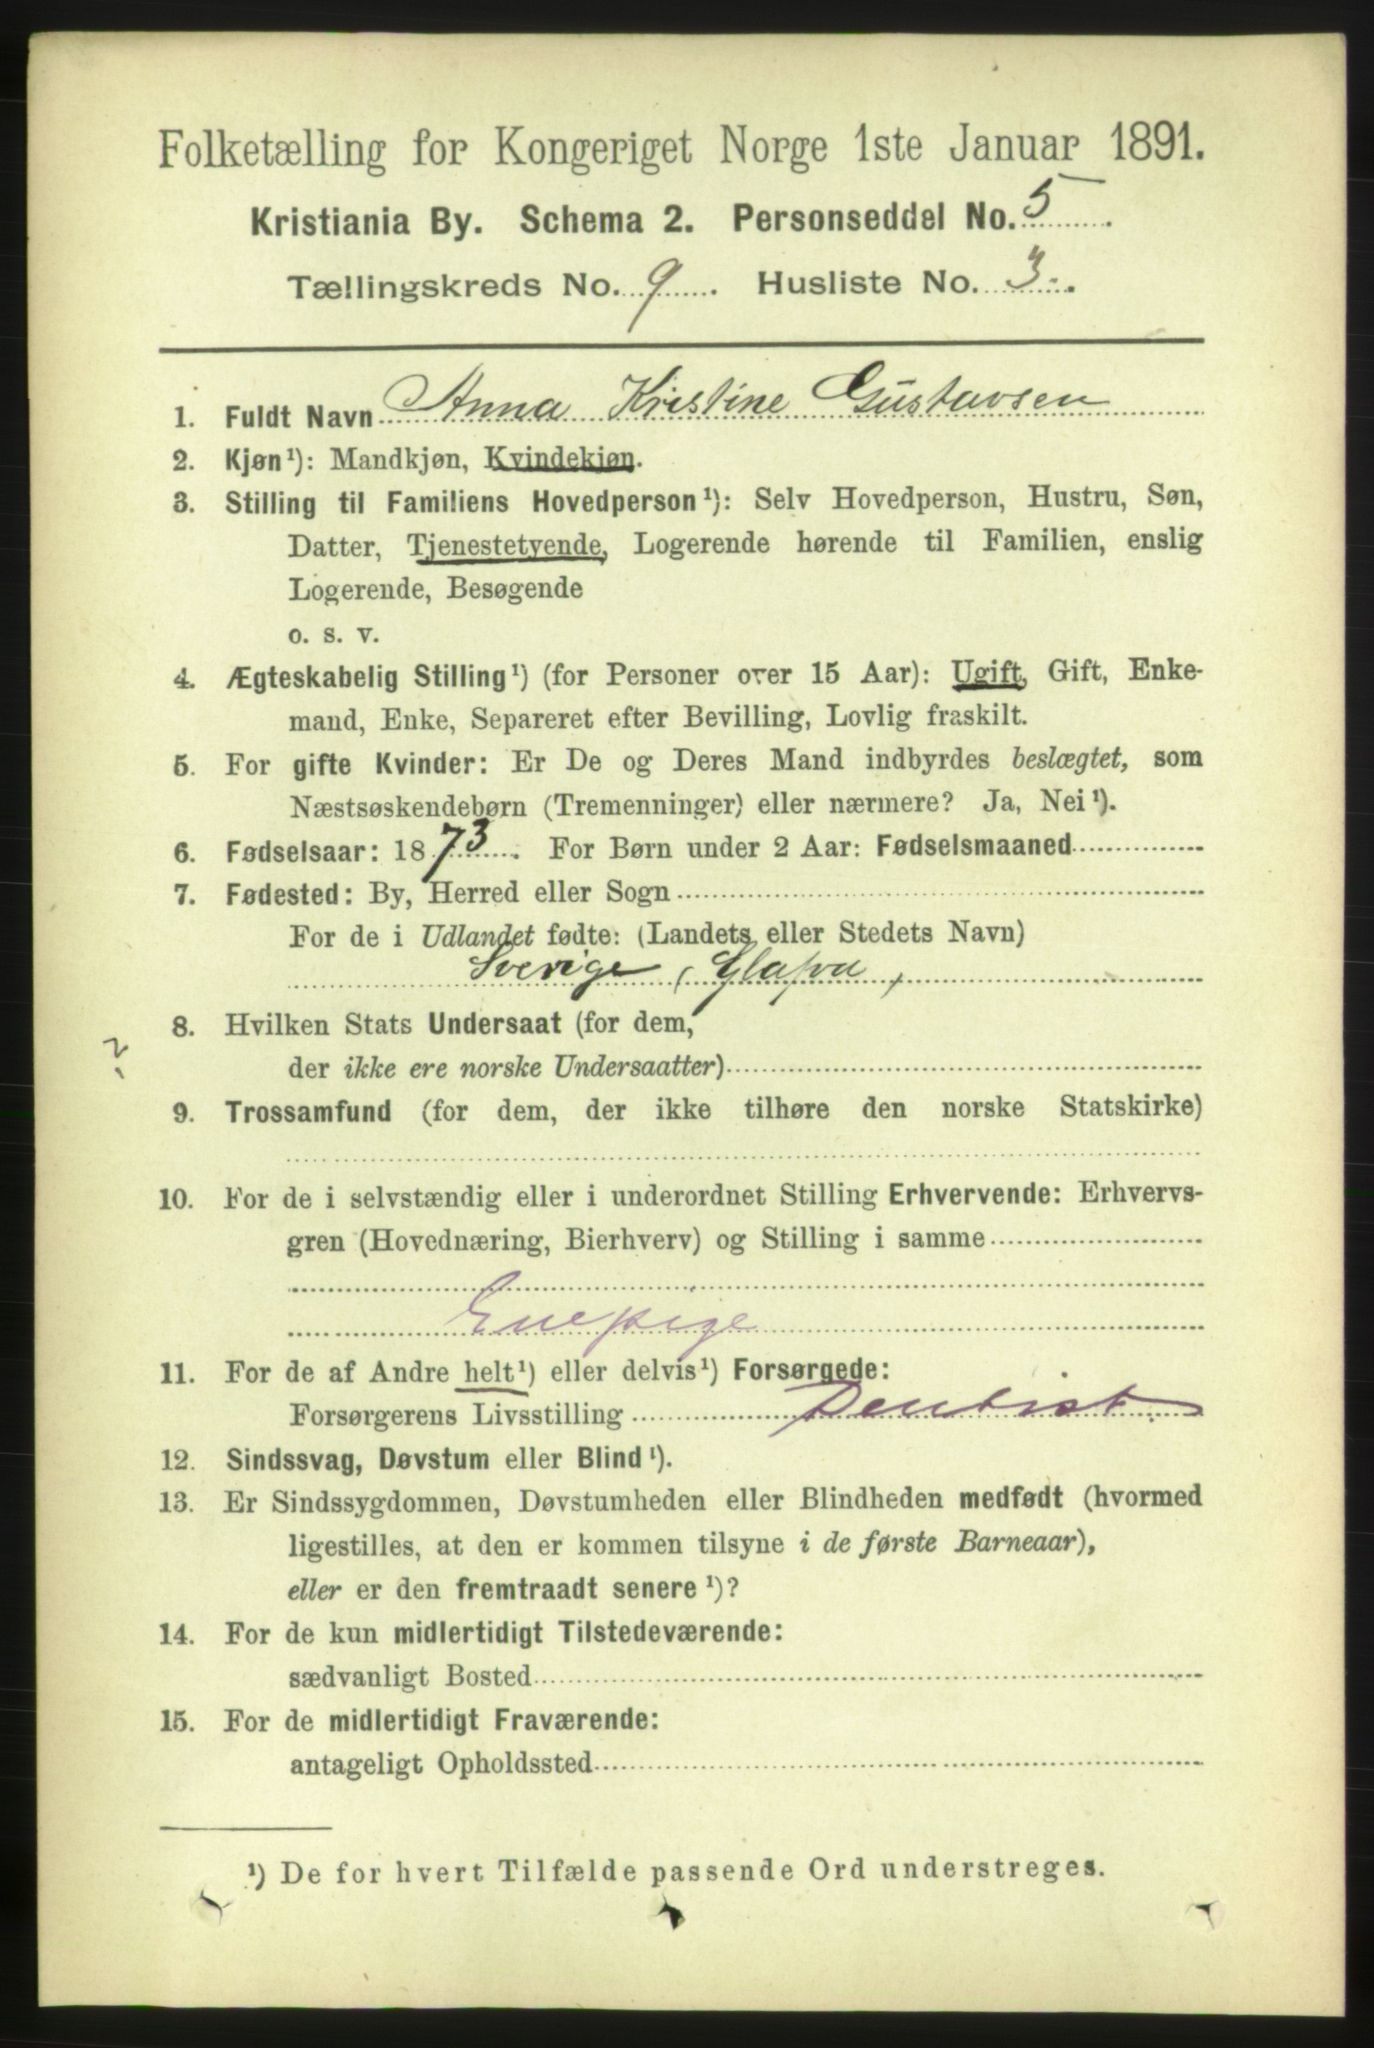 Folketælling for Kongeriget Norge 1ste Januar 1891.
Kristiania By. Schema 2. Personseddel No. 5
Tællingskreds No. 9. Husliste No. 3.
1. Fuldt Navn Anna Kristine Gustavsen
2. Kjøn¹): Mandkjøn, Kvindekjøn.
3. Stilling til Familiens Hovedperson¹): Selv Hovedperson, Hustru, Søn,
Datter, Tjenestetyende, Logerende hørende til Familien, enslig
Logerende, Besøgende
o. s. v.
4. Ægteskabelig Stilling¹) (for Personer over 15 Aar): Ugift, Gift, Enke-
mand, Enke, Separeret efter Bevilling, Lovlig fraskilt.
5. For gifte Kvinder: Er De og Deres Mand indbyrdes beslægtet, som
Næstsøskendebørn (Tremenninger) eller nærmere? Ja, Nei¹).
6. Fødselsaar: 1873. For Børn under 2 Aar: Fødselsmaaned
7. Fødested: By, Herred eller Sogn
For de i Udlandet fødte: (Landets eller Stedets Navn)
Sverige (Glafva)
8. Hvilken Stats Undersaat (for dem,
der ikke ere norske Undersaatter)
9. Trossamfund (for dem, der ikke tilhøre den norske Statskirke)
10. For de i selvstændig eller i underordnet Stilling Erhvervende: Erhvervs-
gren (Hovednæring, Bierhverv) og Stilling i samme
Enepige
11. For de af Andre helt¹) eller delvis¹) Forsørgede:
Forsørgerens Livsstilling Dentist
12. Sindssvag, Døvstum eller Blind¹).
13. Er Sindssygdommen, Døvstumheden eller Blindheden medfødt (hvormed
ligestilles, at den er kommen tilsyne i de første Barneaar),
eller er den fremtraadt senere¹)?
14. For de kun midlertidigt Tilstedeværende:
sædvanligt Bosted
15. For de midlertidigt Fraværende:
antageligt Opholdssted
¹) De for hvert Tilfælde passende Ord understreges.